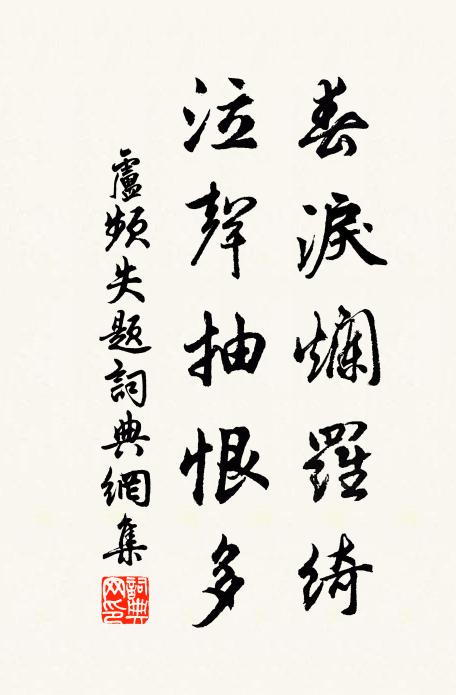 春淚爛羅綺
泣聲抽恨多
盧頻失題詞典網集
詞典網印